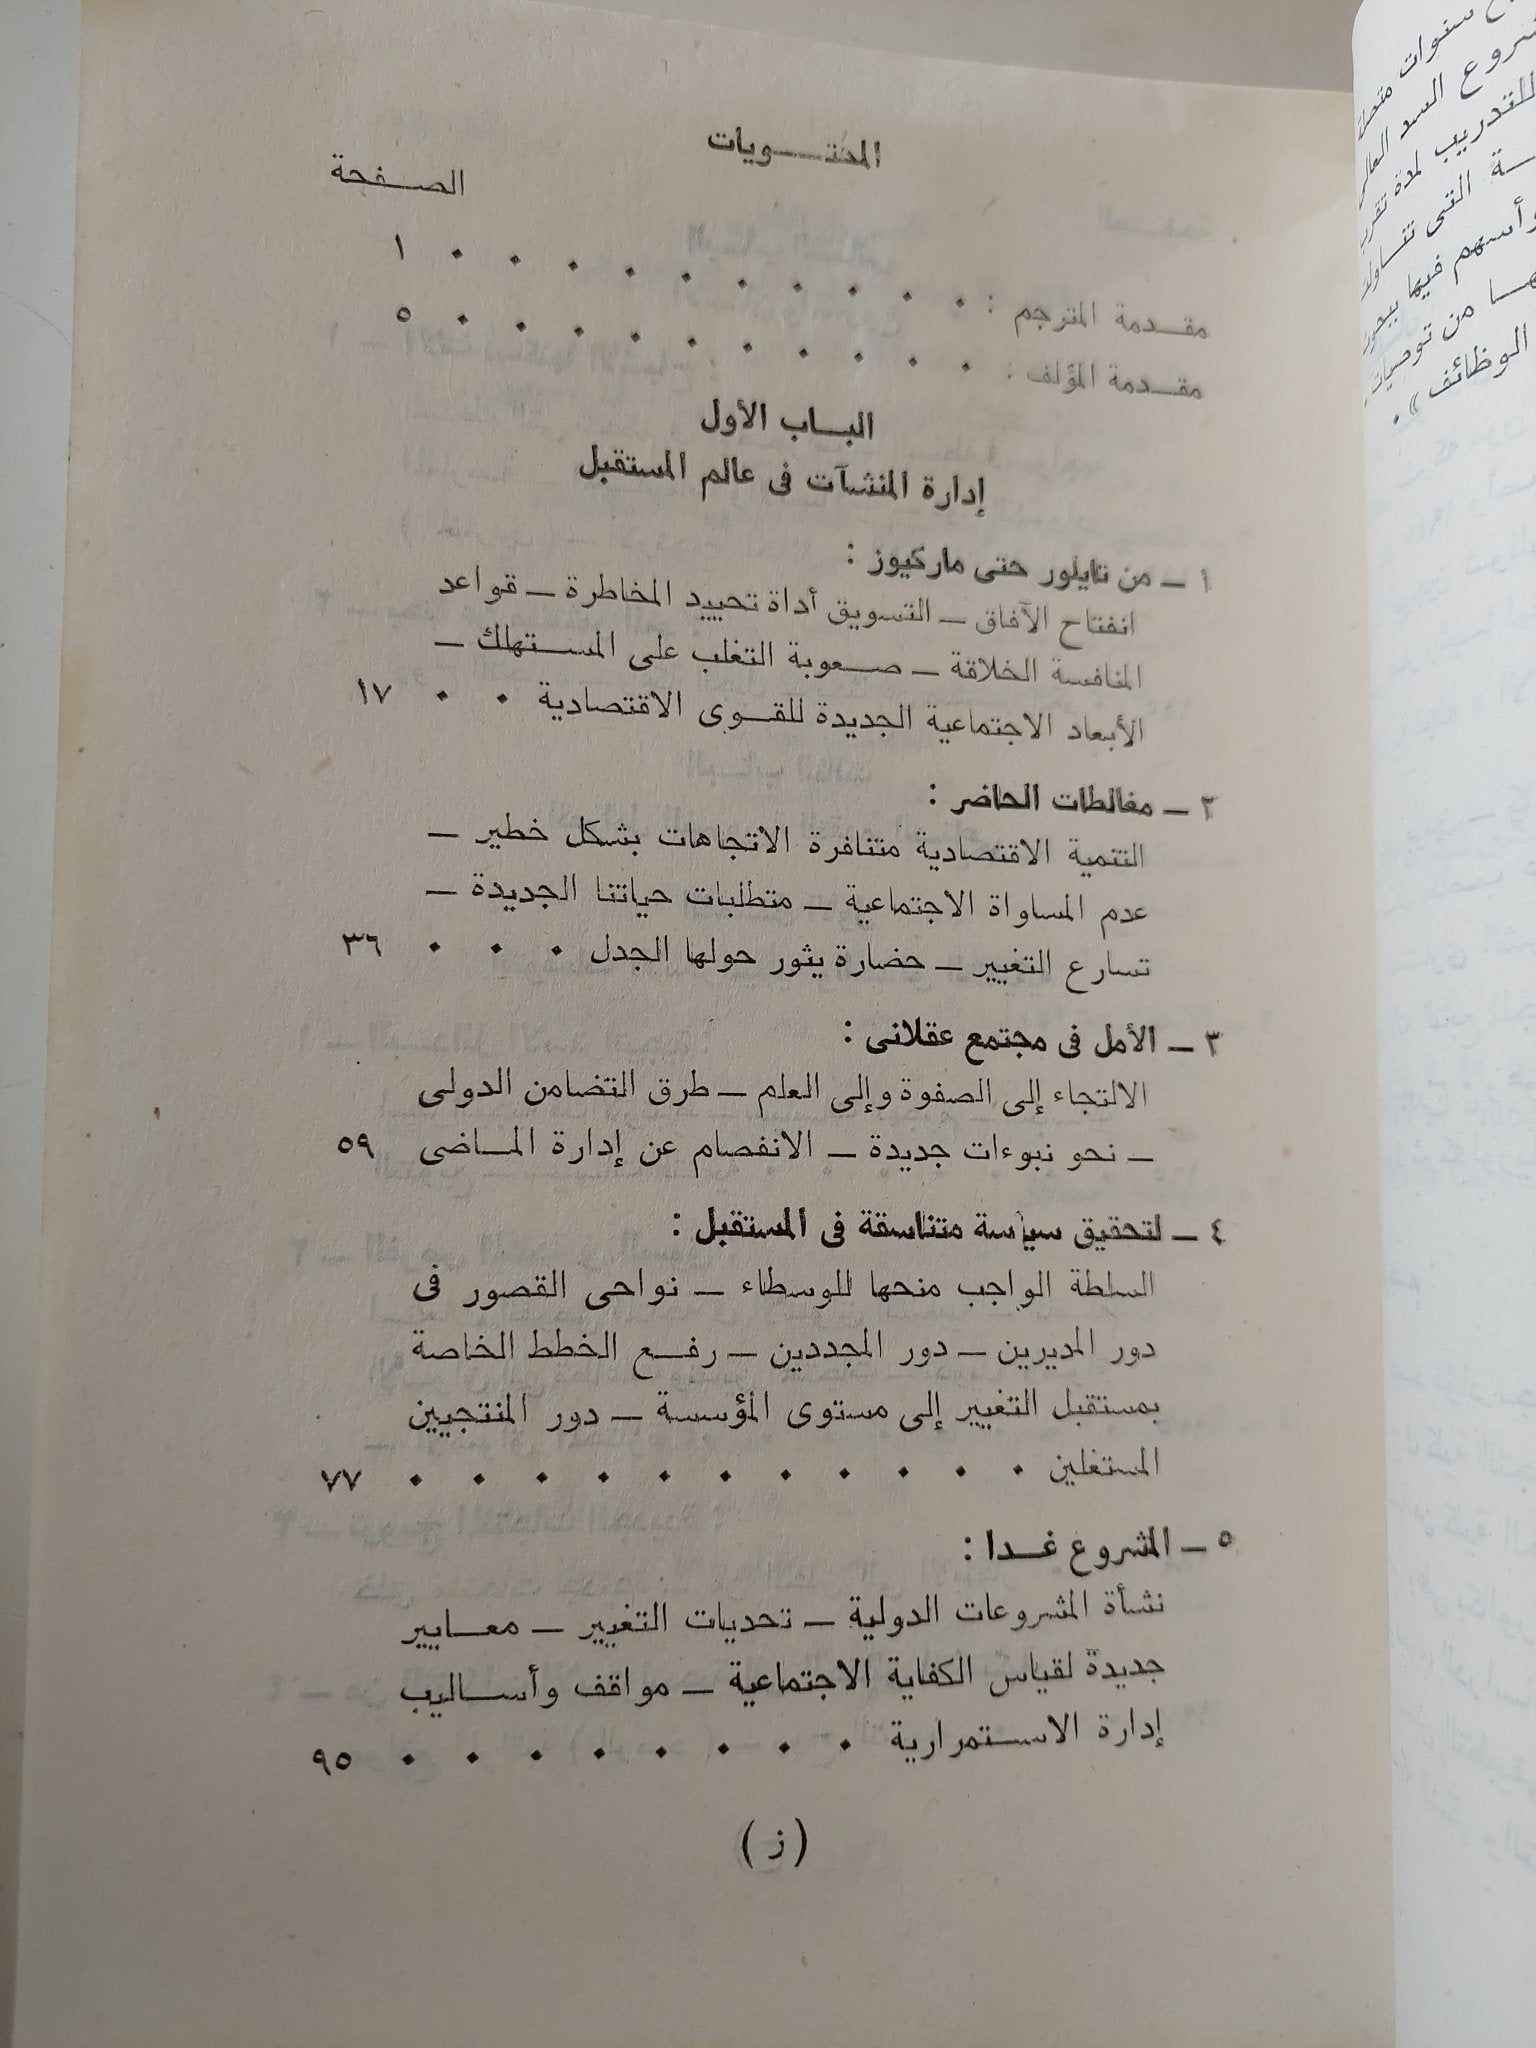 المحتـــويات
الصـــفحة
مقـــدمة المترجم : . . . . . . . . . . ١
مقـــدمة المؤلف : . . . . . . . . . . ٥
البـــاب الأول
إدارة المنشآت فى عالم المستقبل
١ ـ من تايلور حتى ماركيوز :
انفتاح الآفاق ـ التسويق أداة تحييد المخاطرة ـ قواعد
المنافسة الخلاقة ـ صـــعوبة التغلب على المســـتهلك ـ
الأبعاد الاجتماعية الجديدة للقـــوى الاقتصادية . . ١٧
٢ ـ مغالطات الحاضر :
التنمية الاقتصادية متنافرة الاتجاهات بشكل خطير ـ
عدم المساواة الاجتماعية ـ متطلبات حياتنا الجديدة ـ
تسارع التغيير ـ حضارة يثور حولها الجدل . . . ٣٦
٣ ـ الأمل فى مجتمع عقلانى :
الالتجاء إلى الصفوة وإلى العلم ـ طرق التضامن الدولى
ـ نحو نبوءات جديدة ـ الانفصام عن إدارة المـــاضى ٥٩
٤ ـ لتحقيق سياسة متناسقة فى المستقبل :
السلطة الواجب منحها للوسطاء ـ نواحى القصور فى
دور المديرين ـ دور المجددين ـ رفـــع الخطط الخاصة
بمستقبل التغيير إلى مستوى المؤسسة ـ دور المنتجيين
المستغلين . . . . . . . . . . . ٧٧
٥ ـ المشروع غـــدا :
نشأة المشروعات الدولية ـ تحديات التغيير ـ معـــايير
جديدة لقياس الكفاية الاجتماعية ـ مواقف وأســـاليب
إدارة الاســـتمرارية . . . . . . . . ٩٥
( ز )
سنوات
السد العالى
للتدريب لمدة
التى
وأسهم فيها
من توصيات
الوظائف » .